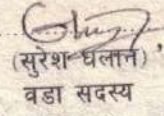 (सुरेश घलान)
वडा सदस्य